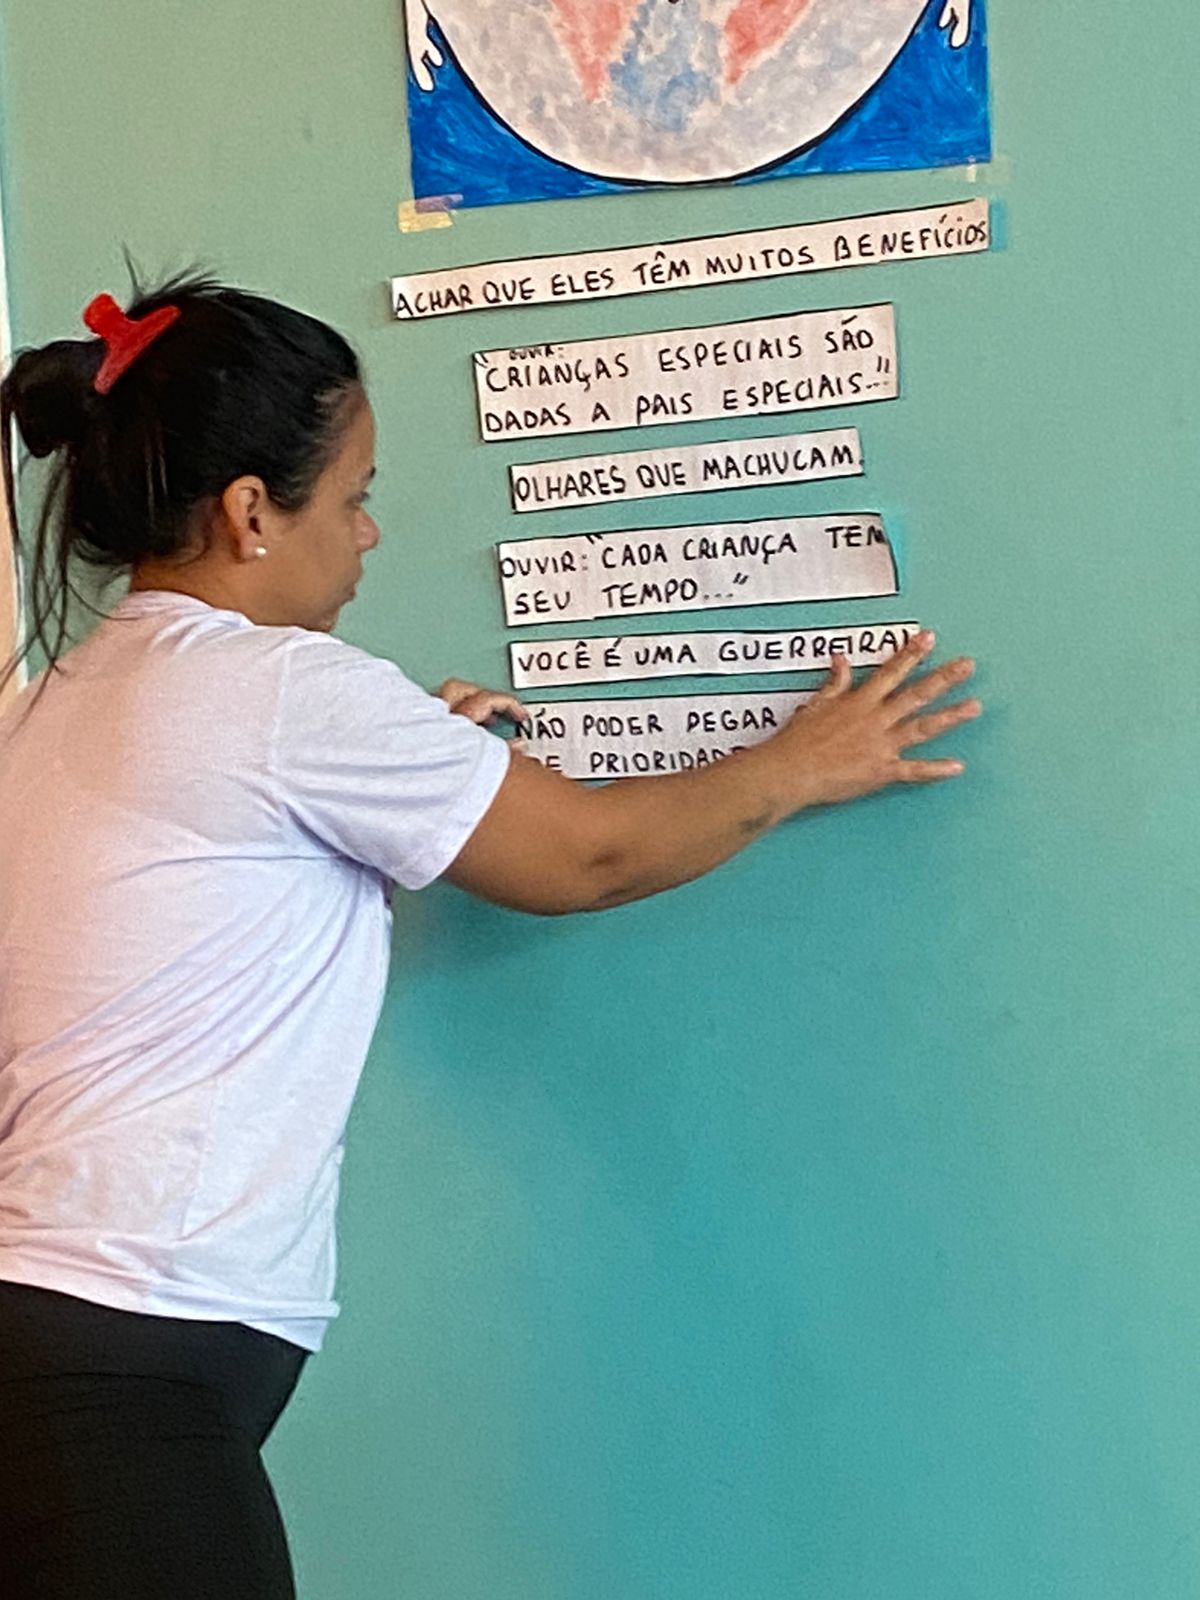 ACHAR QUE ELES TÊM MUITOS BENEFÍCIOS
" OUVIR:
"CRIANÇAS ESPECIAIS SÃO
DADAS A PAIS ESPECIAIS..."
OLHARES QUE MACHUCAM.
OUVIR: "CADA CRIANÇA TEM
SEU TEMPO..."
VOCÊ É UMA GUERREIRA!
NÃO PODER PEGAR
DE PRIORIDADE